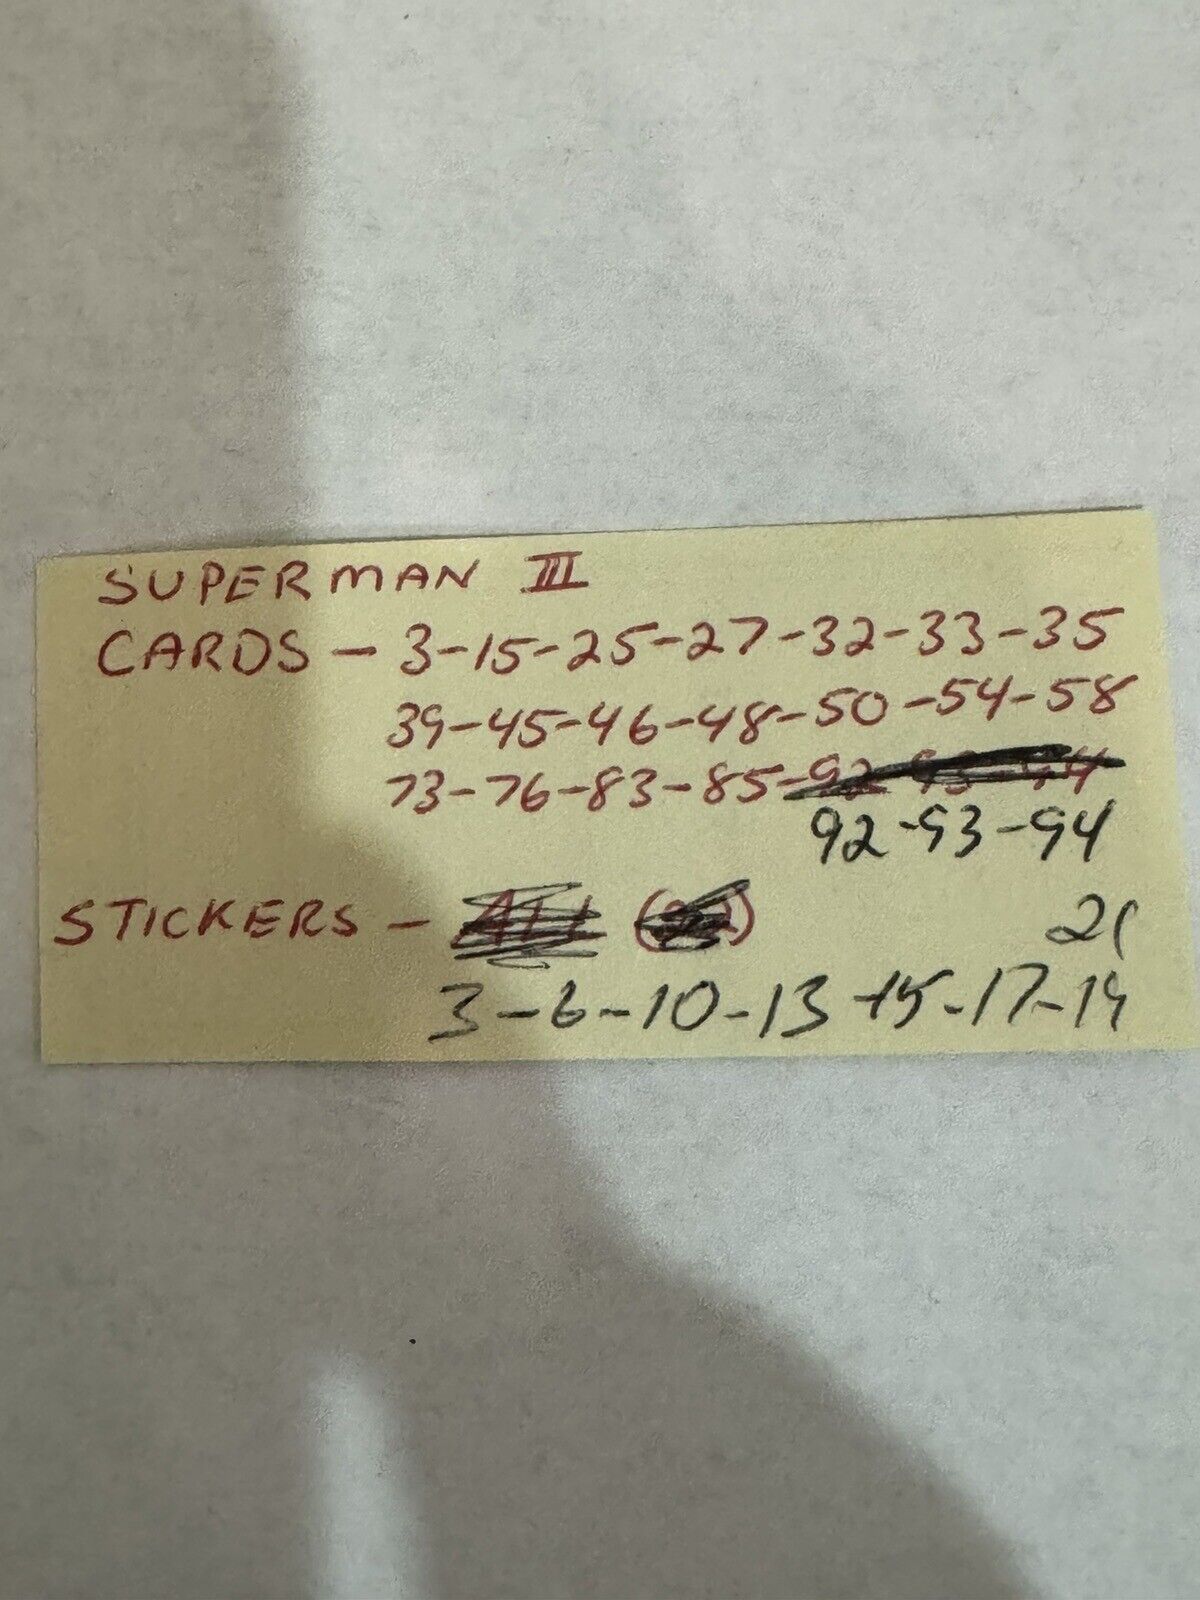 SUPERMAN III
CARDS - 3-15-25-27-32-33-35
39-45-46-48-50-54-58
73-76-83-85-92-93-94
92-93-94
STICKERS - ALL
21
3-6-10-13-15-17-19